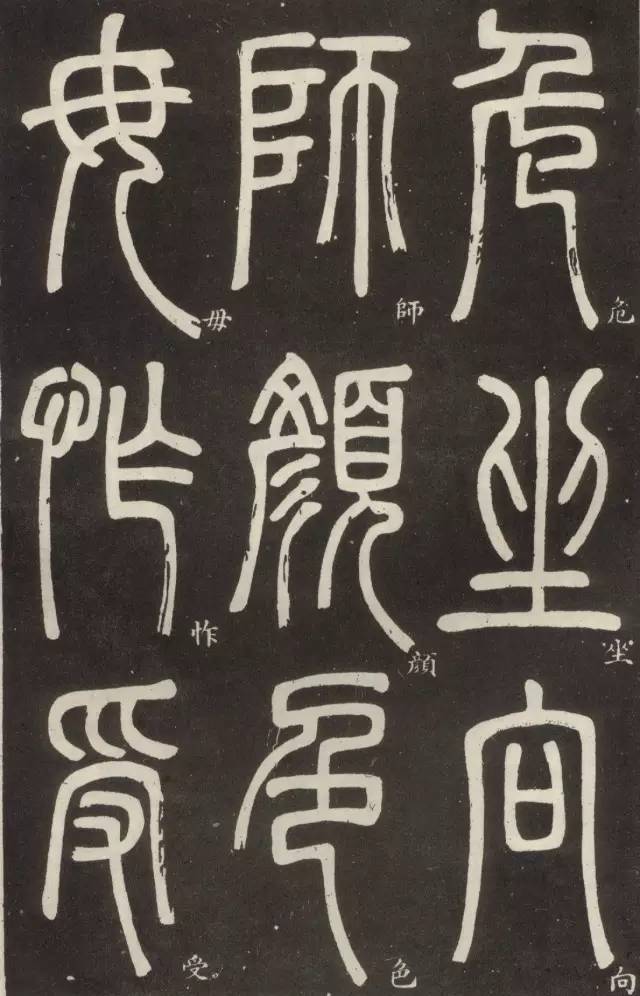 危坐向
師顏色
毋怍受